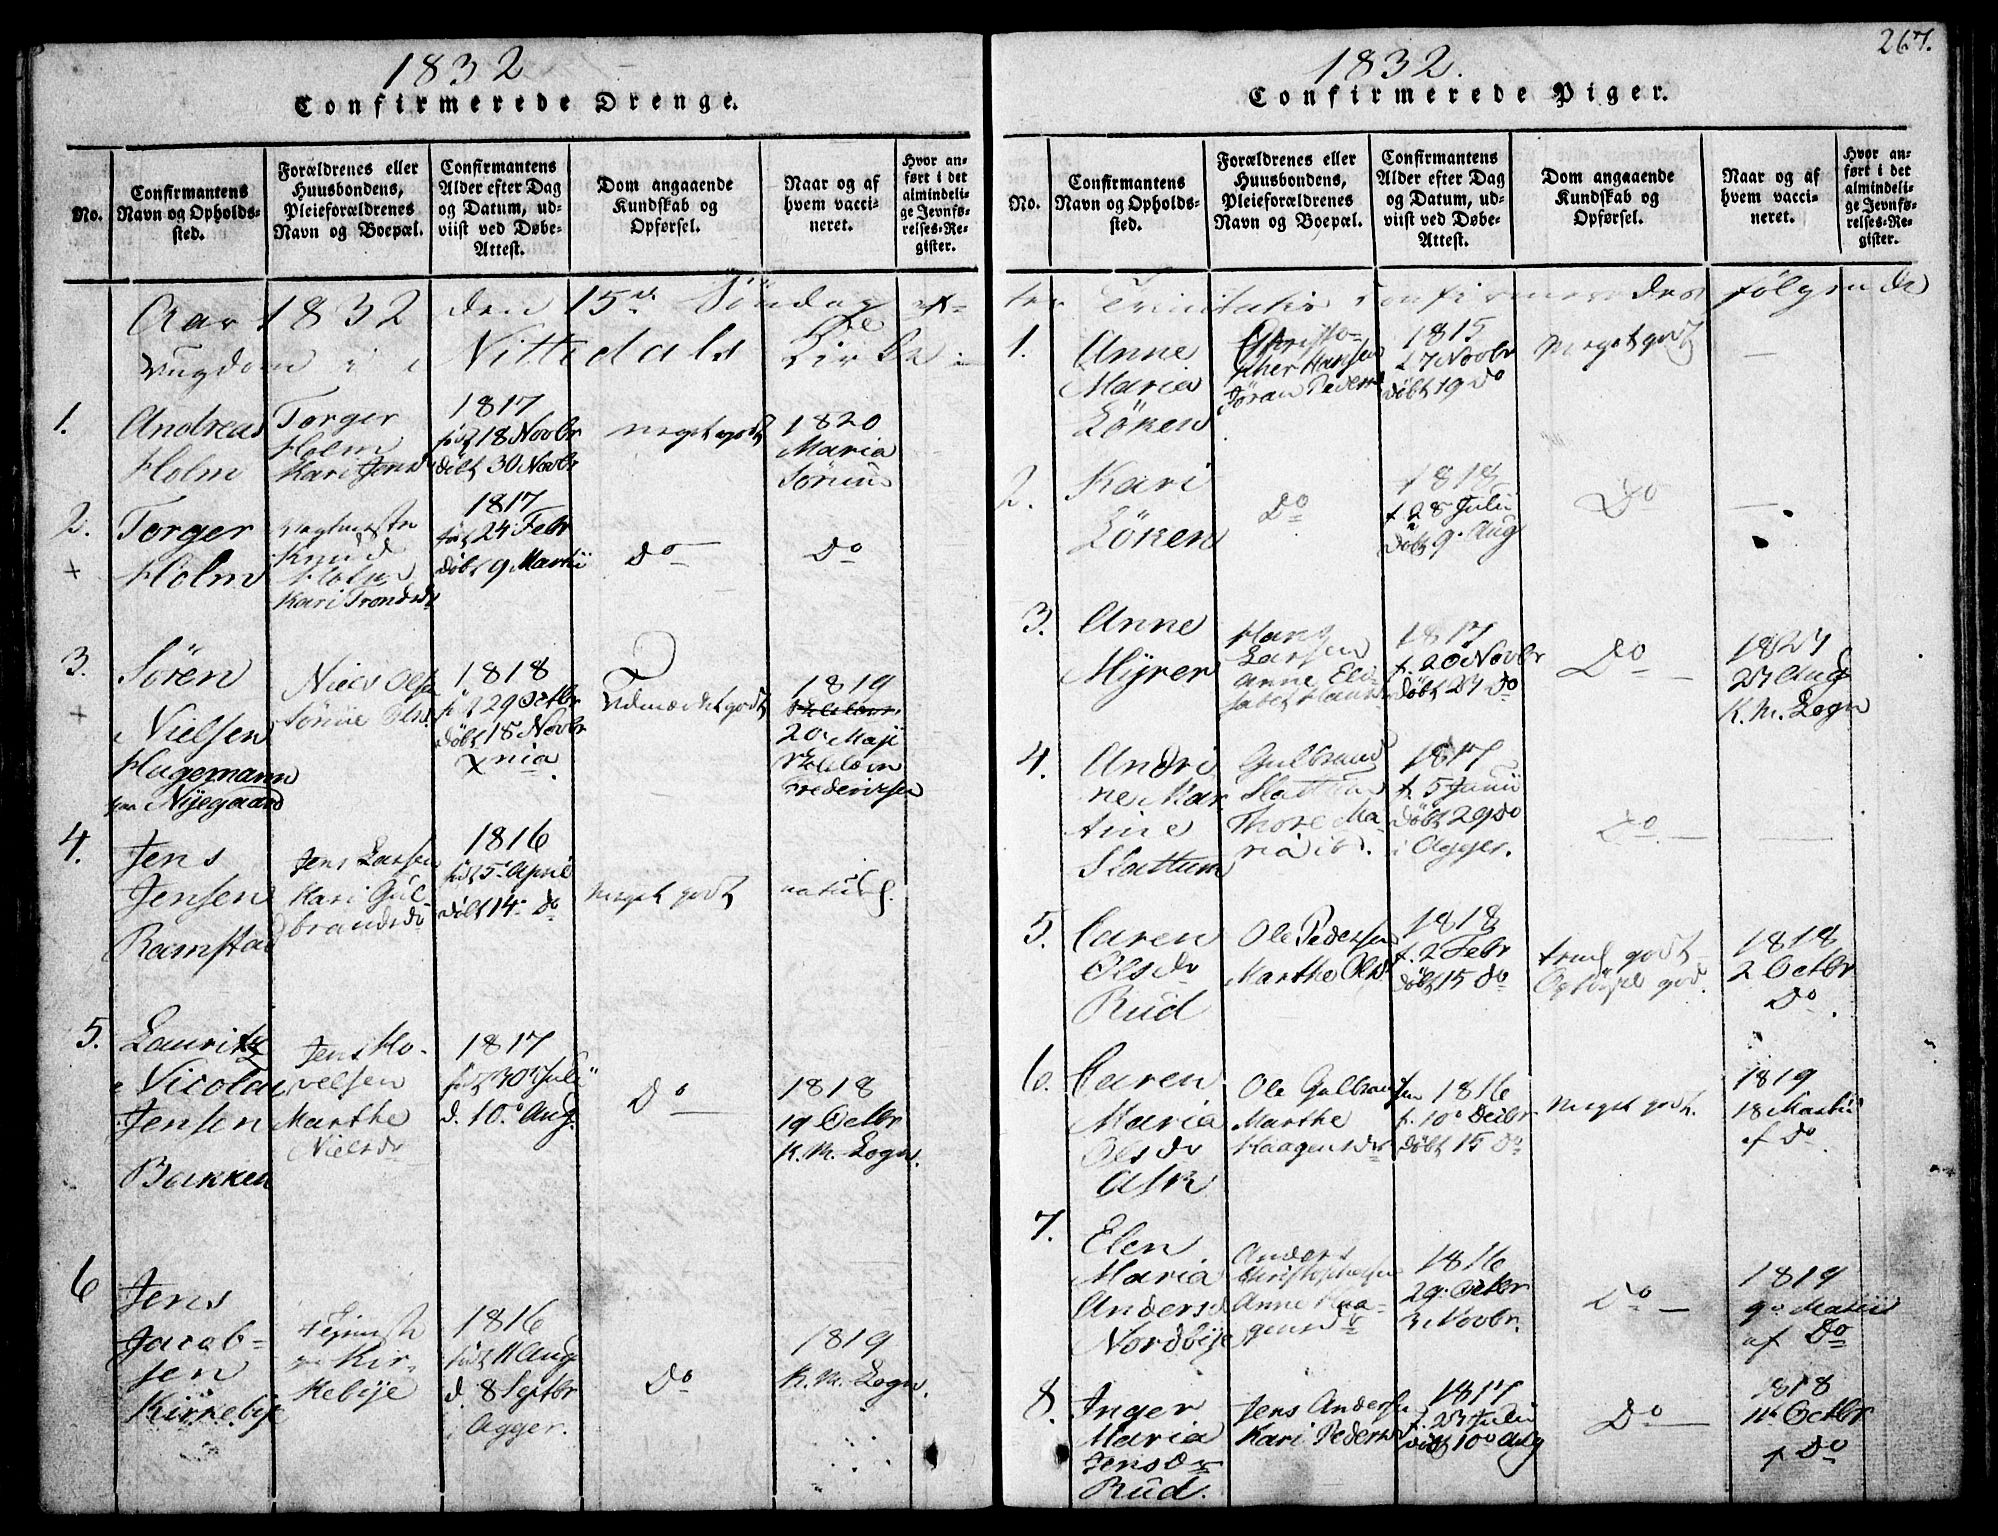 267.
1832
Confirmerede Drenge.
No.
Confirmantens
Navn og Opholds-
sted.
Forældrenes eller
Huusbondens,
Pleieforældrenes
Navn og Boepæl.
Confirmantens
Alder efter Dag
og Datum, ud-
viist ved Døbe-
Attest.
Dom angaaende
Kundskab og
Opførsel.
Naar og af
hvem vacci-
neret.
Hvor an-
ført i det
almindeli-
ge Jevnfø-
relses-Re-
gister.
Aar 1832 den 15de Söndag ef-
Ungdom i Nittedals Kirke
1.
Andreas
Holm
Torger
Holm
Kari Jensd
1817
født 18 Novbr
döbt 30 Novbr
meget godt
1820
Maria
Sörum
2.
+
Torger
Holm
Knud
Holm
Kari Trondsdr
1817
født 24 Febr
döbt 9 Martii
Do
Do
3.
+
Sören
Nielsen
Hagemann
paa Nyegaard
Niels Olsen
1818
född 29 Octbr
döbt 15 Novbr
Xnia
Udmærket godt
1819
20 Maji
Fredericksen
4.
Jens
Jensen
Ramstad
Jens Larsen
Kari Gul-
brandsdr
1816
född 5 April
döbt 14 Do
Meget godt
naturl.
5.
Lauritz
Nicolai
Jensen
Bakken
Jens Ho-
velsen
Marthe
Nielsdr
1817
född 30 Juli
d. 10 Aug.
Do
1818
19 Octbr
K. M. Logn.
6
Jens
Jacob-
sen
Kirkebye
paa Kir-
kebye
1816
född 11 Aug
d. 8 Septbr
i Agger.
Do
1819
K. M. Logn.
1832.
Confirmerede Piger.
No.
Confirmantens
Navn og Opholds-
sted.
Forældrenes eller
Huusbondens,
Pleieforældrenes
Navn og Boepæl.
Confirmantens
Alder efter Dag
og Datum, ud-
viist ved Døbe-
Attest.
Dom angaaende
Kundskab og
Opførsel.
Naar og af
hvem vacci-
neret.
Hvor an-
ført i det
almindeli-
ge Jevnfø-
relses-Re-
gister.
ter Trinitatis Confirmeredes følgende
1.
Anne
Maria
Löken
Christo-
pher Hansen
Jöran Pedersd
1815
f. 7 Novbr
döbt 19 Do
Meget godt
2.
Kari
Löken
Do
1818
f. 28 Julii
döbt 9. Aug
Do
3.
Anne
Myrer
Hans
Larsen
Anne Eli-
sabet Hansd
1817
f. 20 Novbr
döbt 27 Do
Do
1827
27 Aug
K. M. Logn
4.
Andri
ne Mar
tine
Slattum
Gulbrand
Slattum
Thore Ma-
ria ibd.
1817
f. 5 Junii
döbt 29 Do
i Agger.
Do
5.
Caren
Olsdr
Rud
Ole Pedersen
Marthe Olsd
1818
f. 2 Febr
döbt 15 Do
godt
Opførsel god.
1818
2 Octbr
Do
6.
Caren
Maria
Olsdr
Ask
Ole Gulbrandsen
Marthe
Haagensdr
1816
f. 10 Decbr
döbt 15 Do
Meget godt.
1819
18 Martii
af Do
7.
Elen
Maria
Andersd
Nordbye
Anders
Christophersen
Anne Haa-
gensdr
1816
29 Octbr
3 Novbr.
Do
1819
9 Martii
af Do
8.
Inger
Maria
Jensdr
Rud.
Jens Andersen
Kari Pedersd
1817
f. 27 Julii
döbt 10 Aug
Do
1818
11 Octbr
f Do